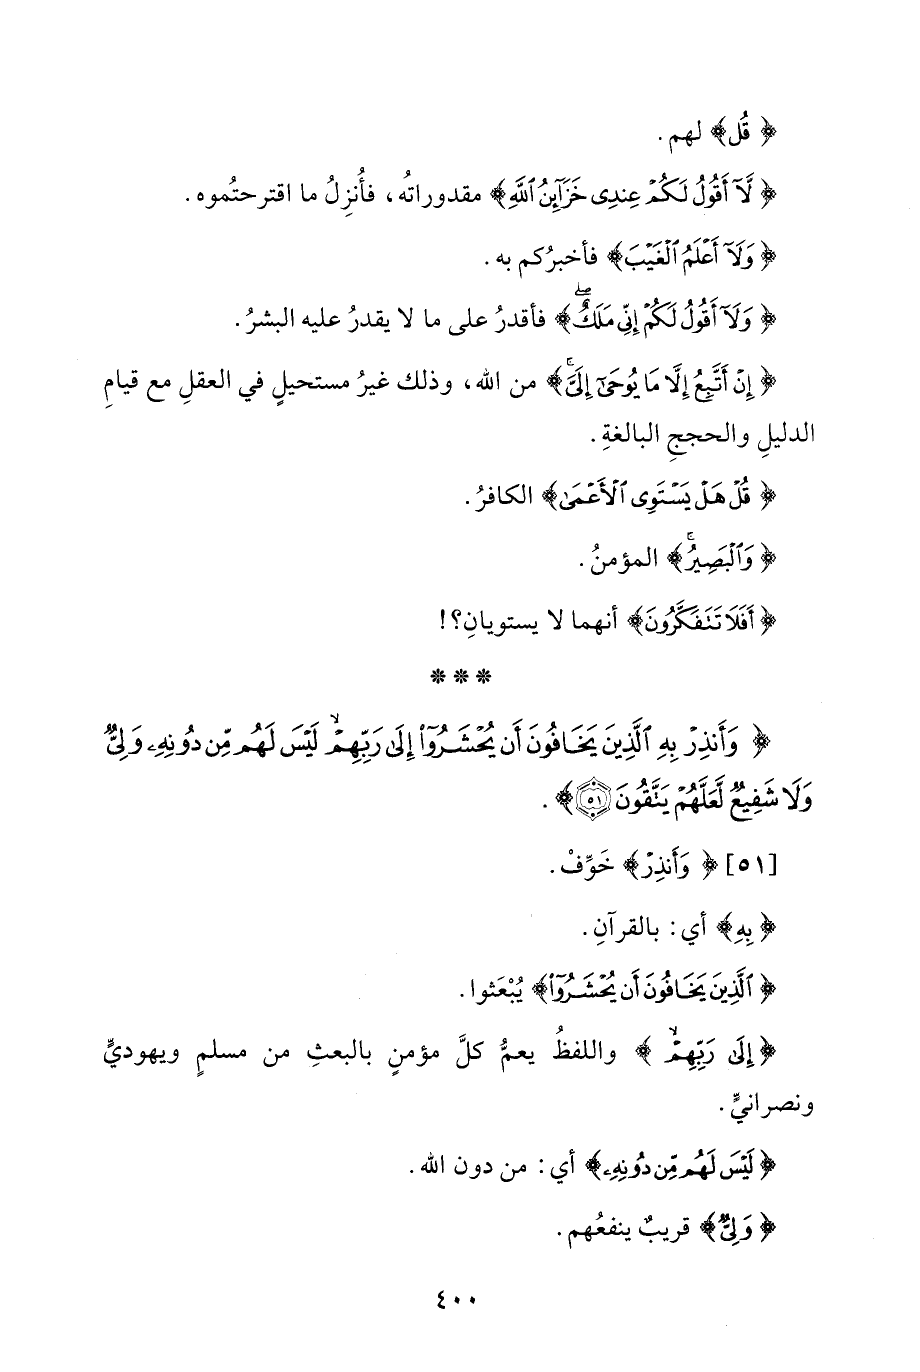 ﴿ قُل﴾ لهم.
﴿ لَّآ أَقُولُ لَكُمۡ عِندِى خَزَآئِنُ ٱللَّهِ﴾ مقدوراتُه، فأُنزِلُ ما اقترحتُموه.
﴿ وَلَآ أَعۡلَمُ ٱلۡغَيۡبَ﴾ فأخبرُكم به.
﴿ وَلَآ أَقُولُ لَكُمۡ إِنِّى مَلَكٌۖ﴾ فأقدرُ على ما لا يقدرُ عليه البشرُ.
﴿ إِنۡ أَتَّبِعُ إِلَّا مَا يُوحَىٰٓ إِلَىَّۚ﴾ من الله، وذلك غيرُ مستحيلٍ في العقلِ مع قيامِ
الدليلِ والحججِ البالغةِ.
﴿ قُلۡ هَلۡ يَسۡتَوِى ٱلۡأَعۡمَىٰ﴾ الكافرُ.
﴿ وَٱلۡبَصِيرُۚ﴾ المؤمنُ.
﴿ أَفَلَا تَتَفَكَّرُونَ﴾ أنهما لا يستويانِ؟!
* * *
﴿ وَأَنذِرۡ بِهِ ٱلَّذِينَ يَخَافُونَ أَن يُحۡشَرُوٓا۟ إِلَىٰ رَبِّهِمۡۙ لَيۡسَ لَهُم مِّن دُونِهِۦ وَلِىٌّ
وَلَا شَفِيعٌ لَّعَلَّهُمۡ يَتَّقُونَ ٥١﴾.
[٥١] ﴿ وَأَنذِرۡ﴾ خَوِّفْ.
﴿ بِهِ﴾ أي: بالقرآنِ.
﴿ ٱلَّذِينَ يَخَافُونَ أَن يُحۡشَرُوٓا۟﴾ يُبْعَثوا.
﴿ إِلَىٰ رَبِّهِمۡۙ ﴾ واللفظُ يعمُّ كلَّ مؤمنٍ بالبعثِ من مسلمٍ ويهوديٍّ
ونصرانيٍّ.
﴿ لَيۡسَ لَهُم مِّن دُونِهِۦ﴾ أي: من دون الله.
﴿ وَلِىٌّ﴾ قريبٌ ينفعُهم.
٤٠٠